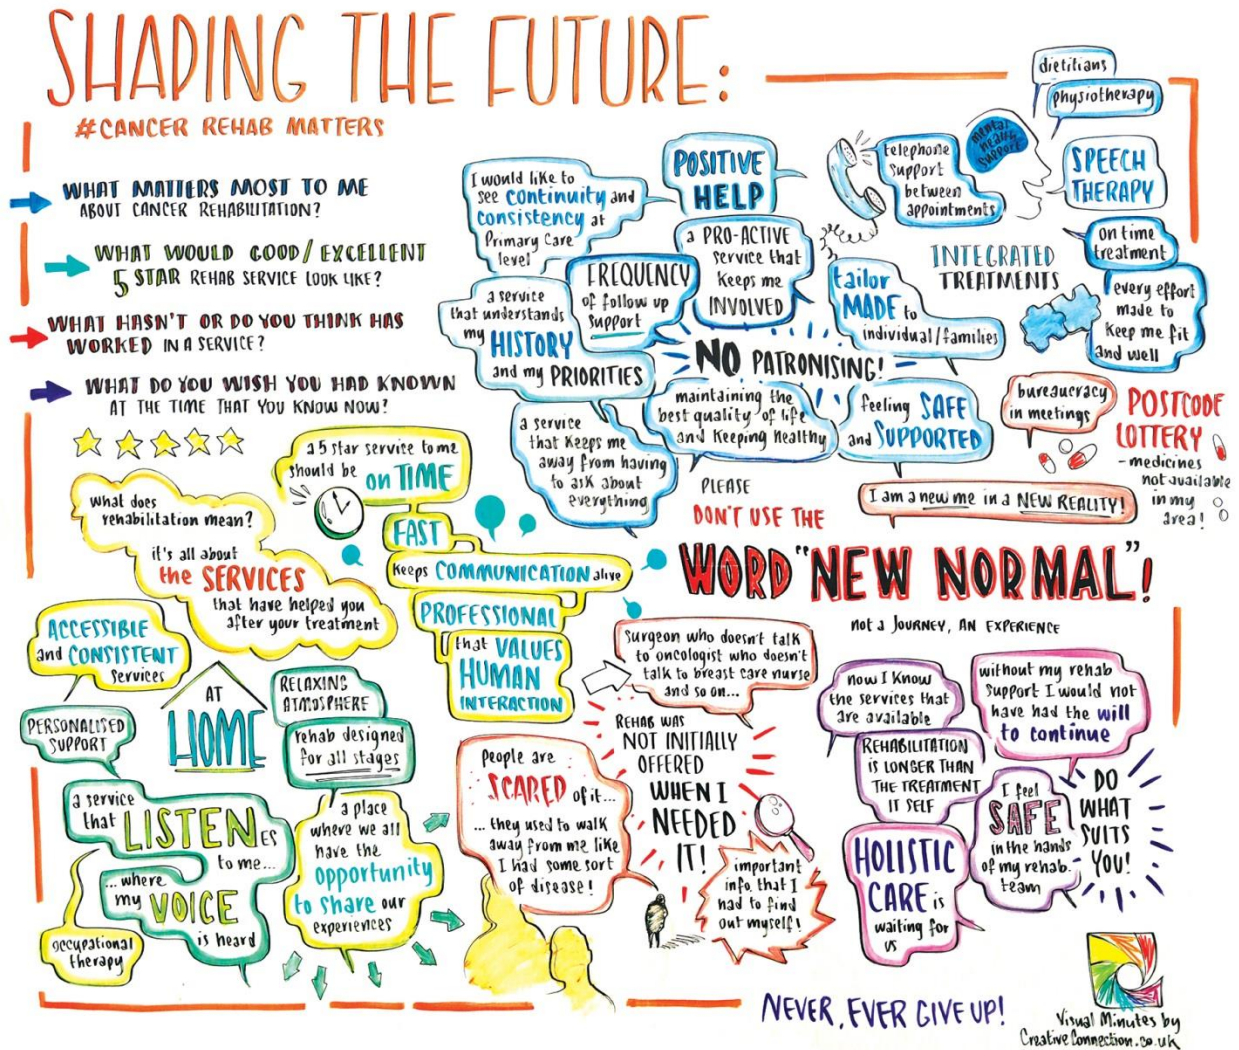 SHAPING THE FUTURE:
#CANCER REHAB MATTERS
WHAT MATTERS MOST TO ME
ABOUT CANCER REHABILITATION?
WHAT WOULD GOOD/EXCELLENT
5 STAR REHAB SERVICE LOOK LIKE?
WHAT HASN'T OR DO YOU THINK HAS
WORKED IN A SERVICE?
WHAT DO YOU WISH YOU HAD KNOWN
AT THE TIME THAT YOU KNOW NOW?
I would like to
see continuity and
consistency at
Primary Care
level
POSITIVE
HELP
a PRO-ACTIVE
service that
keeps me
INVOLVED
FREQUENCY
of follow up
support
a service
that understands
my HISTORY
and my PRIORITIES
a service
that keeps me
away from having
to ask about
everything
NO PATRONISING!
maintaining the
best quality of life
and keeping healthy
telephone
support
between
appointments
mental
health
support
dietitians
physiotherapy
SPEECH
THERAPY
INTEGRATED
TREATMENTS
on time
treatment
every effort
made to
keep me fit
and well
tailor
MADE to
individual/families
feeling SAFE
and SUPPORTED
bureaucracy
in meetings
POSTCODE
LOTTERY
- medicines
not available
in my
area!
I am a new me in a NEW REALITY!
PLEASE
DON'T USE THE
WORD "NEW NORMAL"!
not a JOURNEY, AN EXPERIENCE
a 5 star service to me
should be
on TIME
FAST
keeps COMMUNICATION alive
PROFESSIONAL
that VALUES
HUMAN
INTERACTION
what does
rehabilitation mean?
it's all about
the SERVICES
that have helped you
after your treatment
ACCESSIBLE
and CONSISTENT
services
AT
HOME
RELAXING
ATMOSPHERE
rehab designed
for all stages
PERSONALISED
SUPPORT
a service
that LISTENes
to me...
...where
my VOICE
is heard
occupational
therapy
a place
where we all
have the
opportunity
to share our
experiences
Surgeon who doesn't talk
to oncologist who doesn't
talk to breast care nurse
and so on...
people are
SCARED of it...
...they used to walk
away from me like
I had some sort
of disease!
REHAB WAS
NOT INITIALLY
OFFERED
WHEN I
NEEDED
IT!
important
info that I
had to find
out myself!
now I know
the services that
are available
REHABILITATION
IS LONGER THAN
THE TREATMENT
IT SELF
HOLISTIC
CARE is
waiting for
us
without my rehab
support I would not
have had the will
to continue
I feel
SAFE
in the hands
of my rehab
team
DO
WHAT
SUITS
YOU!
NEVER, EVER GIVE UP!
Visual Minutes by
CreativeConnection.co.uk